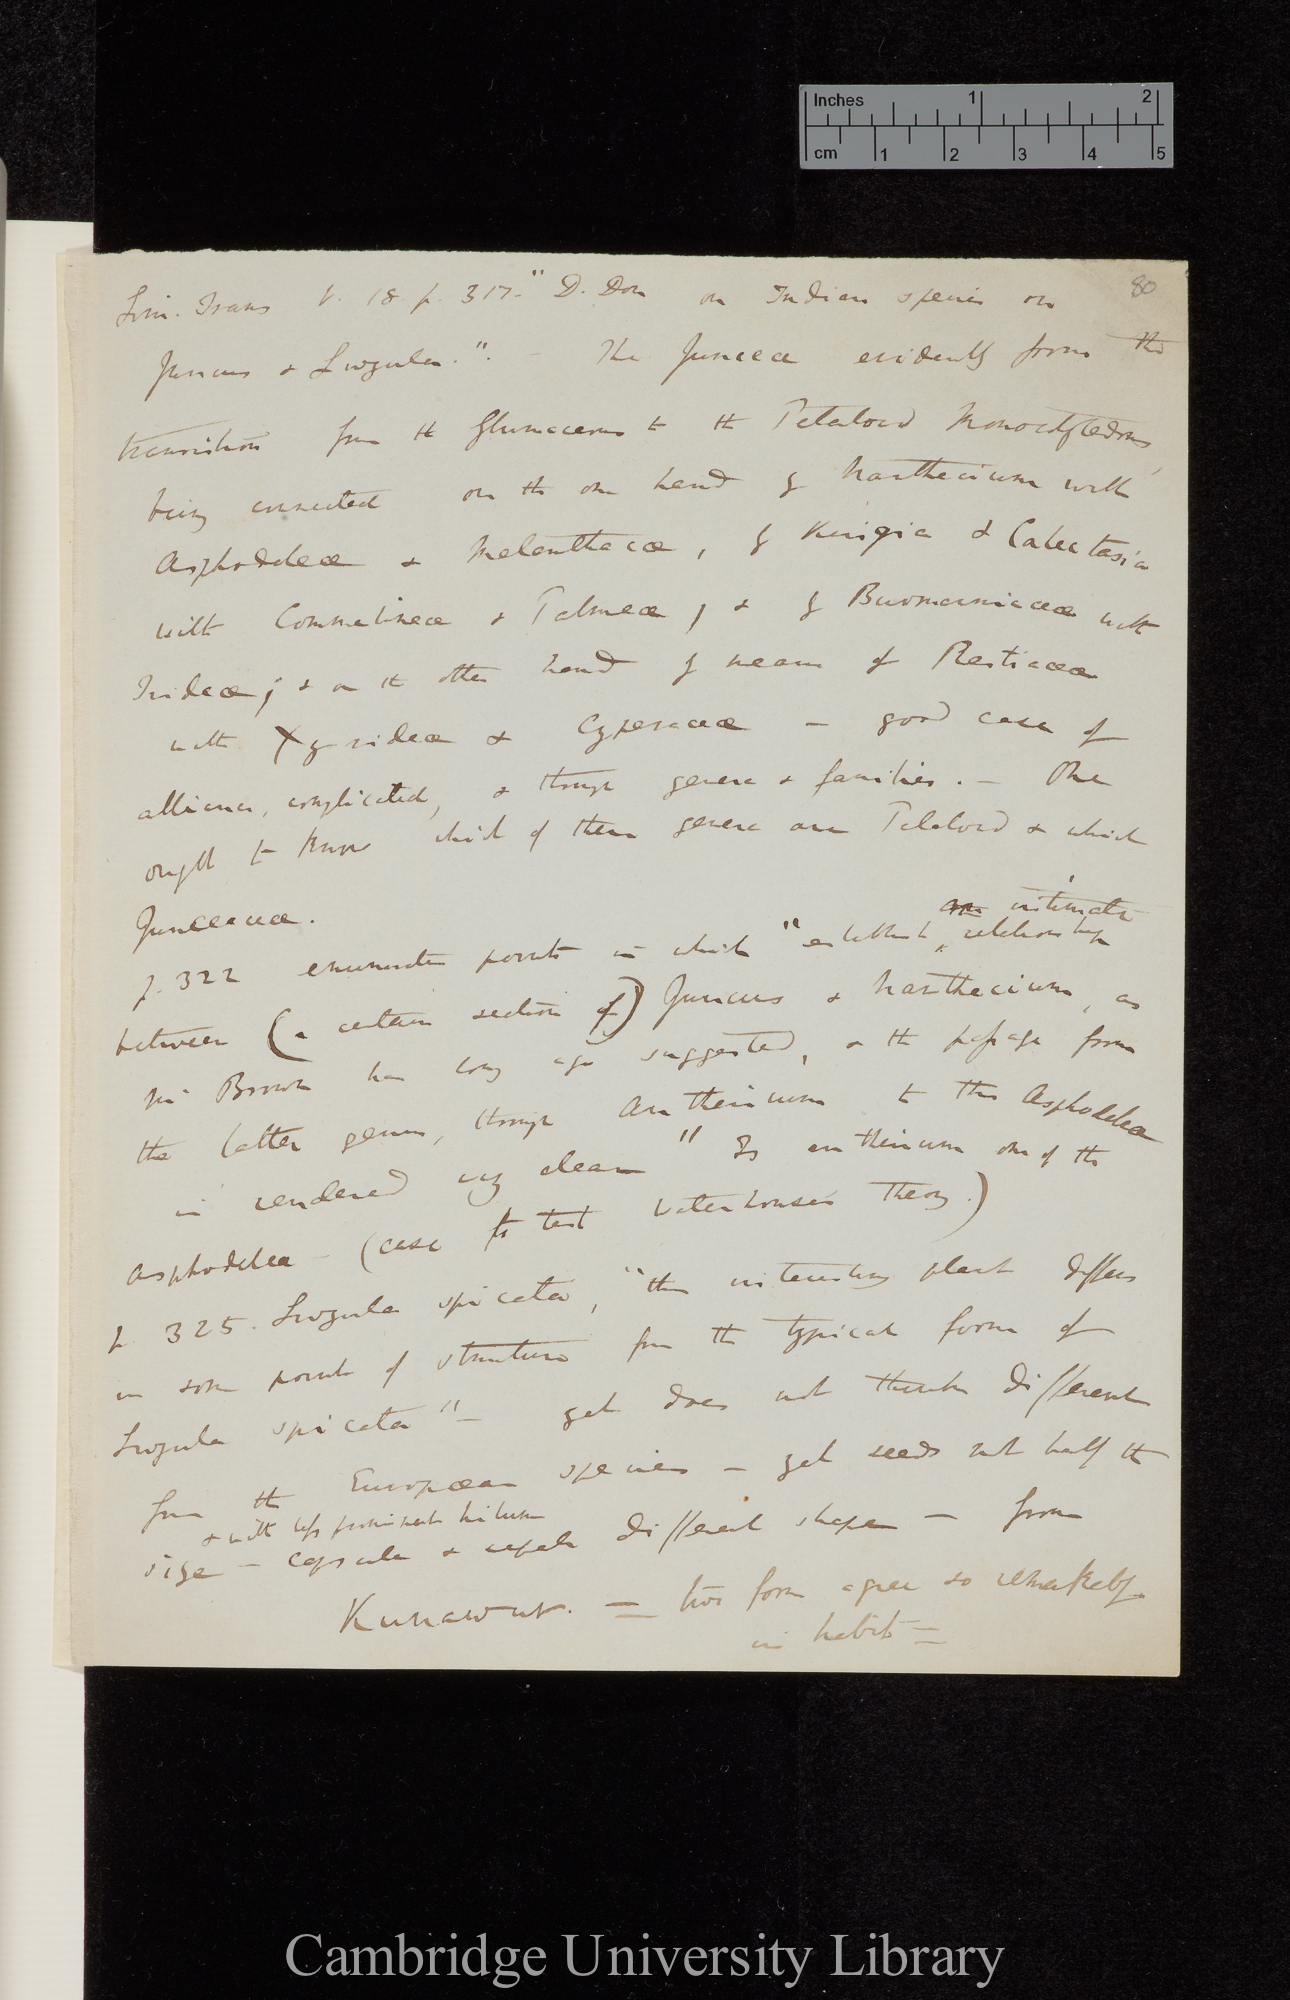 Inches 1 2
cm 1 2 3 4 5
80
Linn. Trans V. 18. p. 317. "D. Don on Indian species on
Juncus & Luzula.". — The Junceæ evidently form the
transition from the Glumaceous to the Petaloid Monocotyledons,
being connected on the one hand by Narthecium with
Asphodeleæ & Melanthaceæ, by Kingia & Calectasia
with Commelineæ & Palmeæ; & by Burmanniaceæ with
Irideæ; & on the other hand by means of Restiaceæ
with Xyrideæ & Cyperaceæ — good case of
alliance, complicated, & through genera & families. — One
ought to know which of these genera are Petaloid & which
Junceaceæ.
an intimate
p. 322 enumerates points in which "establish relationship
between (a certain section of) Juncus & Narthecium, as
Mr Brown has long ago suggested, & the passage from
the latter genus, through Anthericum to the Asphodeleæ
is rendered very clear" Is anthericum one of the
Asphodeleæ — (case to test Waterhouse's theory.)
p 325. Luzula spicata, "this interesting plant differs
in some points of structure from the typical form of
Luzula spicata" — yet does not think different
from the European species — yet seeds not half the
& with less prominent hilum
size — capsule & sepals different shape — from
Kunawur. — two form agree so remarkably
in habit —
Cambridge University Library